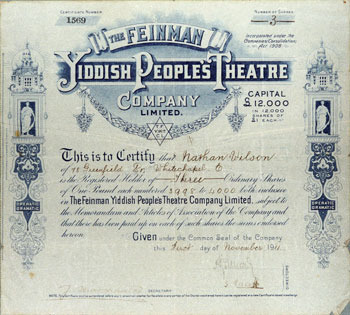 CERTIFICATE NUMBER
1569
NUMBER OF SHARES
3
THE FEINMAN
YIDDISH PEOPLE'S THEATRE
COMPANY
LIMITED.
Incorporated under the
Companies (Consolidation)
Act 1908
CAPITAL
£12,000
IN 12,000
SHARES OF
£1 EACH
This is to Certify that Nathan Wilson
of Greenfield St. Whitechapel E.
is the Registered Holder of Three Ordinary Shares
of One Pound each numbered 3998 to 4000 both inclusive
in The Feinman Yiddish People's Theatre Company Limited, subject to
the Memorandum and Articles of Association of the Company and
that there has been paid up on each of such shares the sums endorsed
hereon.
OPERATIC
DRAMATIC
OPERATIC
DRAMATIC
Given under the Common Seal of the Company
this First day of November 1911
DIRECTORS
SECRETARY.